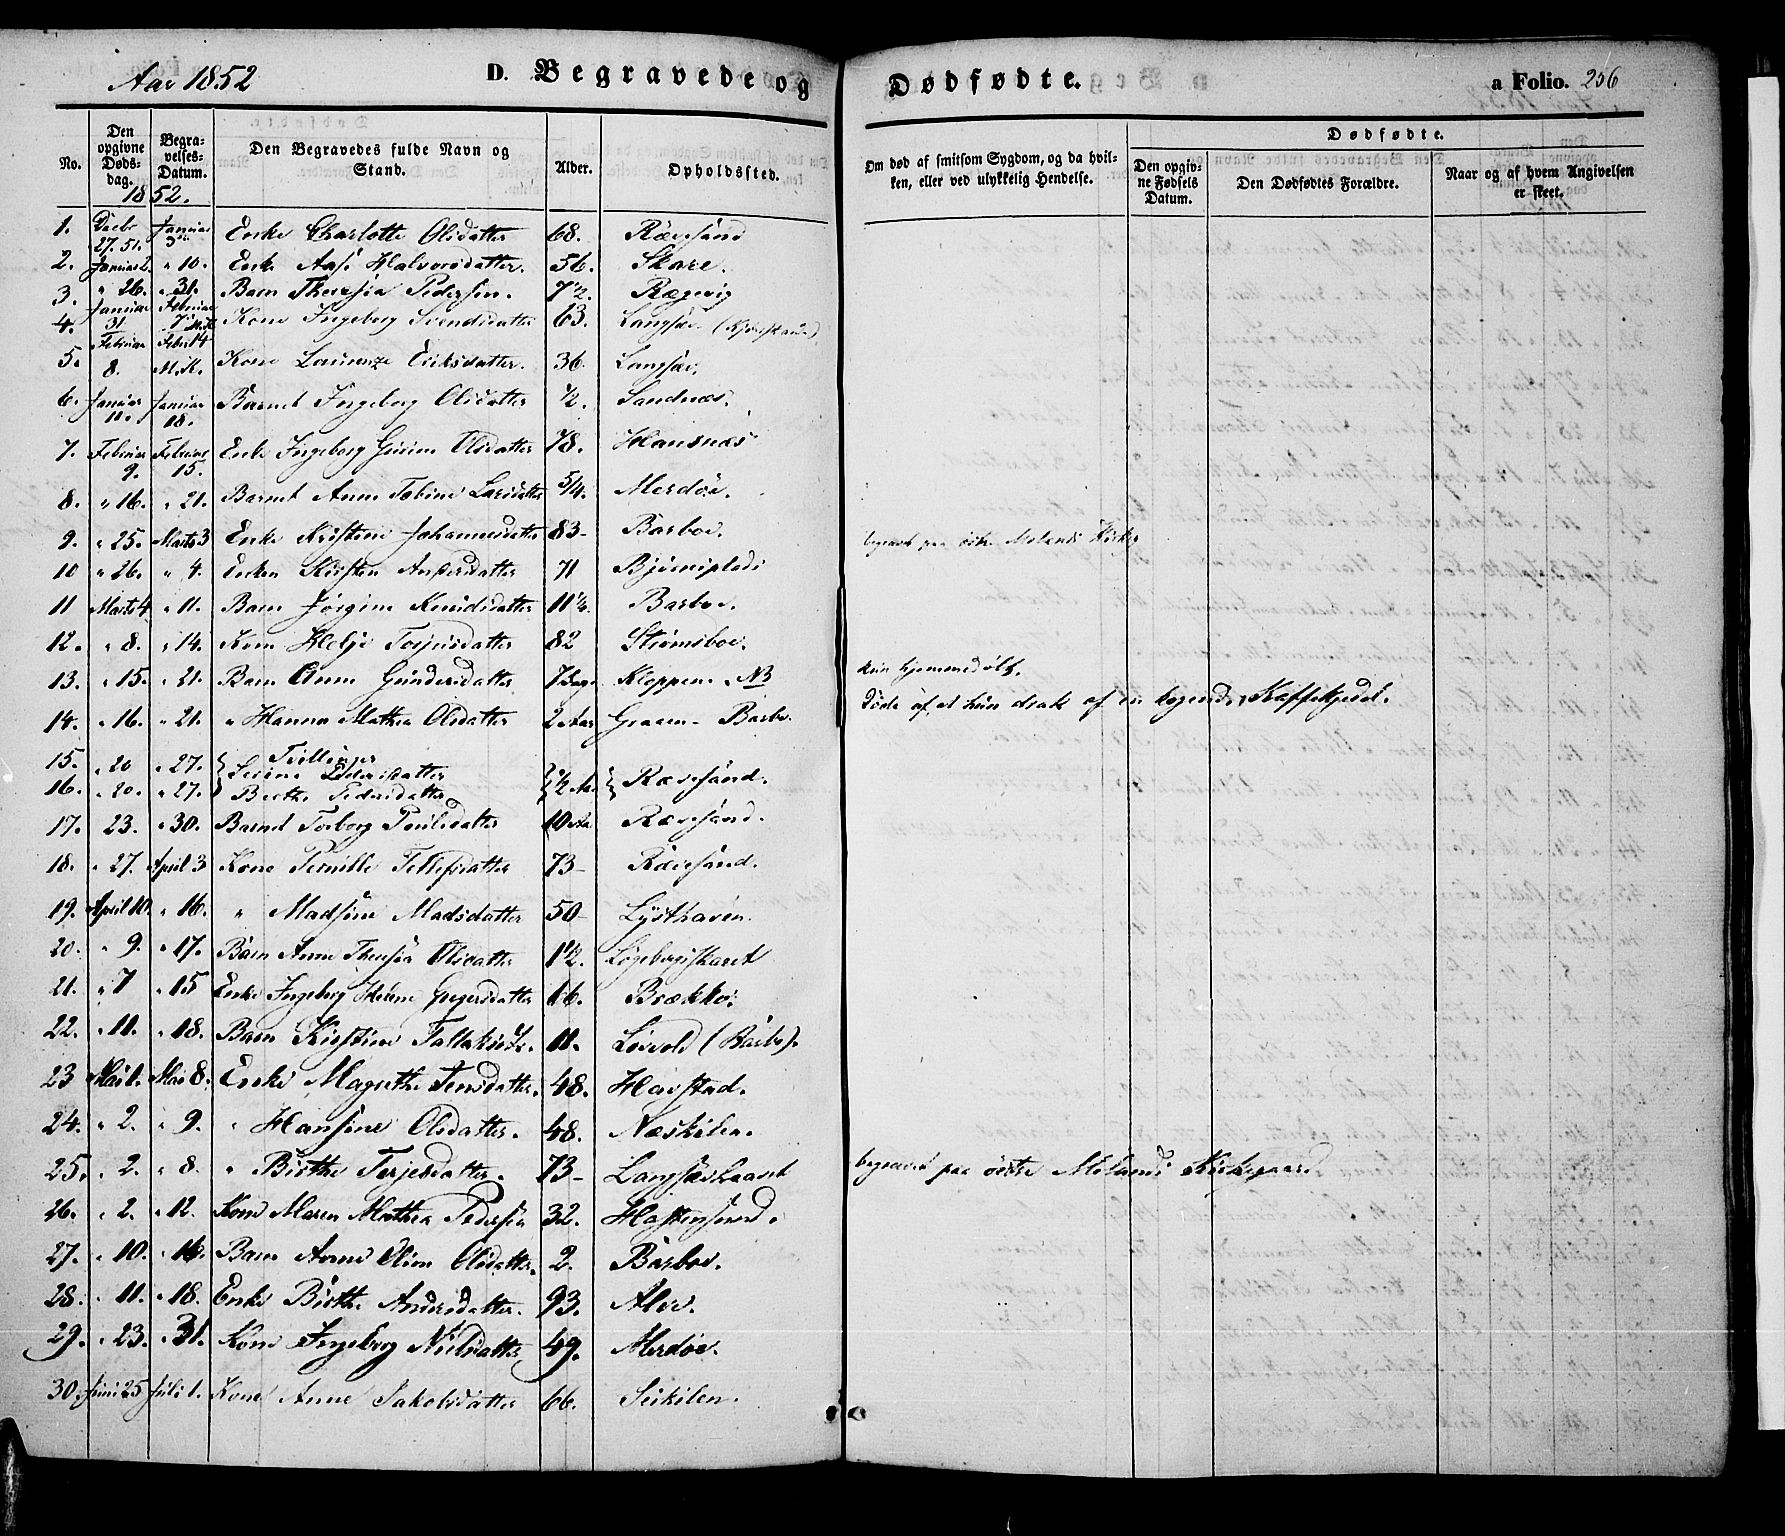 Aar 1852 D. Begravede og Dødfødte. a Folio. 256
No. Den opgivne Dødsdag. Begravelses-Datum. Den Begravedes fulde Navn og Stand. Alder. Opholdssted. Om død af smitsom Sygdom, og da hvilken, eller ved ulykkelig Hendelse. Dødfødte. Den opgivne Fødsels Datum. Den Dødfødtes Forældre. Naar og af hvem Angivelsen er skeet.
1852.
1. Decbr 27. 51. Januar 3 Enke Charlotte Olsdatter 68. Rævesand
2. Januar 2. " 10. Enke Aase Halvorsdatter. 56. Skare.
3. " 26. " 31. Barn Theresia Pedersen. 7 1/2. Rægevig
4. Januar 31. Februar 7 Kone Ingeborg Svendsdatter 63. Langsæv
5. Februar 8. Febr 14 Kone Laurenze Eriksdatter. 36. Langsæv.
6. Januar 11. Januar 18. Barnet Ingeborg Olsdatter 1/2. Sandnæs.
7. Februar 9. Februar 15. Enke Ingeborg Gurine Olsdatter 78. Hausnæs
8. " 16. " 21. Barnet Anne Tobine Larsdatter 5/4. Merdøe.
9. " 25. Marts 3 Enke Kristine Johannesdatter 83- Barboe. begravet paa østre Molands Kirkeg
10 " 26. " 4. Enken Kirsten Andersdatter 71 Bjørnsplads
11 Marts 4 " 11. Barn Jørgine Knudsdatter 11 1/2. Barboe.
12. " 8. " 14. Kone Helje Torjusdatter 82 Strømsboe.
13. " 15. " 21. Barn Anne Gundersdatter 7 Dage Kloppen. NB kun hjemmedøbt.
14. " 16. " 21. " Hanna Mathea Olsdatter 2 Aar Graaen- Barbo. Døde af, at hun drak af en kogende Kaffekjedel.
Tvillinger
15. " 20 " 27. Serine Pedersdatter
16. " 20. " 27. Birthe Pedersdatter 1/2 Aar Rævesand.
17. 23. " 30. Barnet Torborg Poulsdatter 10 Aa Rævesand.
18. " 27. April 3 Kone Pernille Tellefsdatter 73- Rævesand.
19. April 10. " 16. " Madsine Madsdatter 50- Lysthaven.
20. " 9. " 17. Barn Anne Thersia Olsdatter 1 1/2. Løgebergskaret
21. " 7 " 15 Enke Ingeborg Helene Gregersdatter 66. Brækkø:
22. " 11. " 18. Barn Kirstine Tallaksd. 11. Løvold (Barbo).
23 Mai 1. Mai 8. Enke Magrethe Jensdatter. 48. Havstad.
24. " 2. " 9. " Hansine Olsdatter. 48. Næskilen.
25. " 2. " 8. " Birthe Terjesdatter. 73- Langsæv begravet paa østre Molands Kirkegaard
26. " 2. " 12. Kone Maren Mathea Pedersen 32. Hastensund.
27. " 10. " 16. Barn Anne Oline Olsdatter. 2. Barboe.
28. " 11. " 18. Enke Birthe Andersdatter. 93. Alve.
29. " 23. " 31. Kone Ingeborg Nielsdatter 49. Merdøe.
30. Juni 25 Juli 1. Kone Anne Jakobsdatter 66. Seikilen.